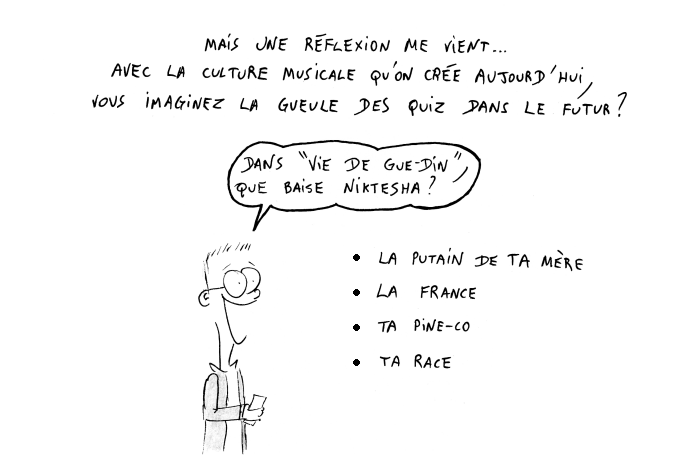 MAIS UNE RÉFLEXION ME VIENT...
AVEC LA CULTURE MUSICALE QU'ON CRÉE AUJOURD'HUI,
VOUS IMAGINEZ LA GUEULE DES QUIZ DANS LE FUTUR ?
DANS "VIE DE GUE-DIN",
QUE BAISE NIKTESHA ?
• LA PUTAIN DE TA MÈRE
• LA FRANCE
• TA PINE-CO
• TA RACE